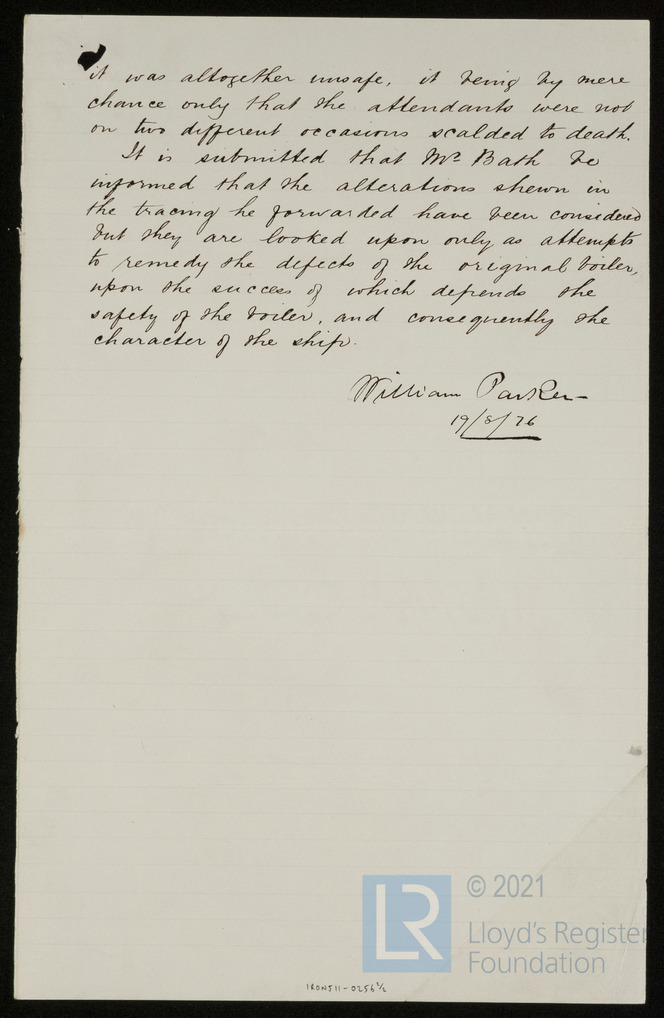 it was altogether unsafe, it being by mere
chance only that the attendants were not
on two different occasions scalded to death.
It is submitted that Mr Bath be
informed that the alterations shewn in
the tracing he forwarded have been considered
but they are looked upon only as attempts
to remedy the defects of the original boiler,
upon the success of which depends the
safety of the boiler, and consequently the
character of the ship.
William Parker
19/8/76
LR
© 2021
Lloyd's Register
Foundation
IRON511-0256 1/2